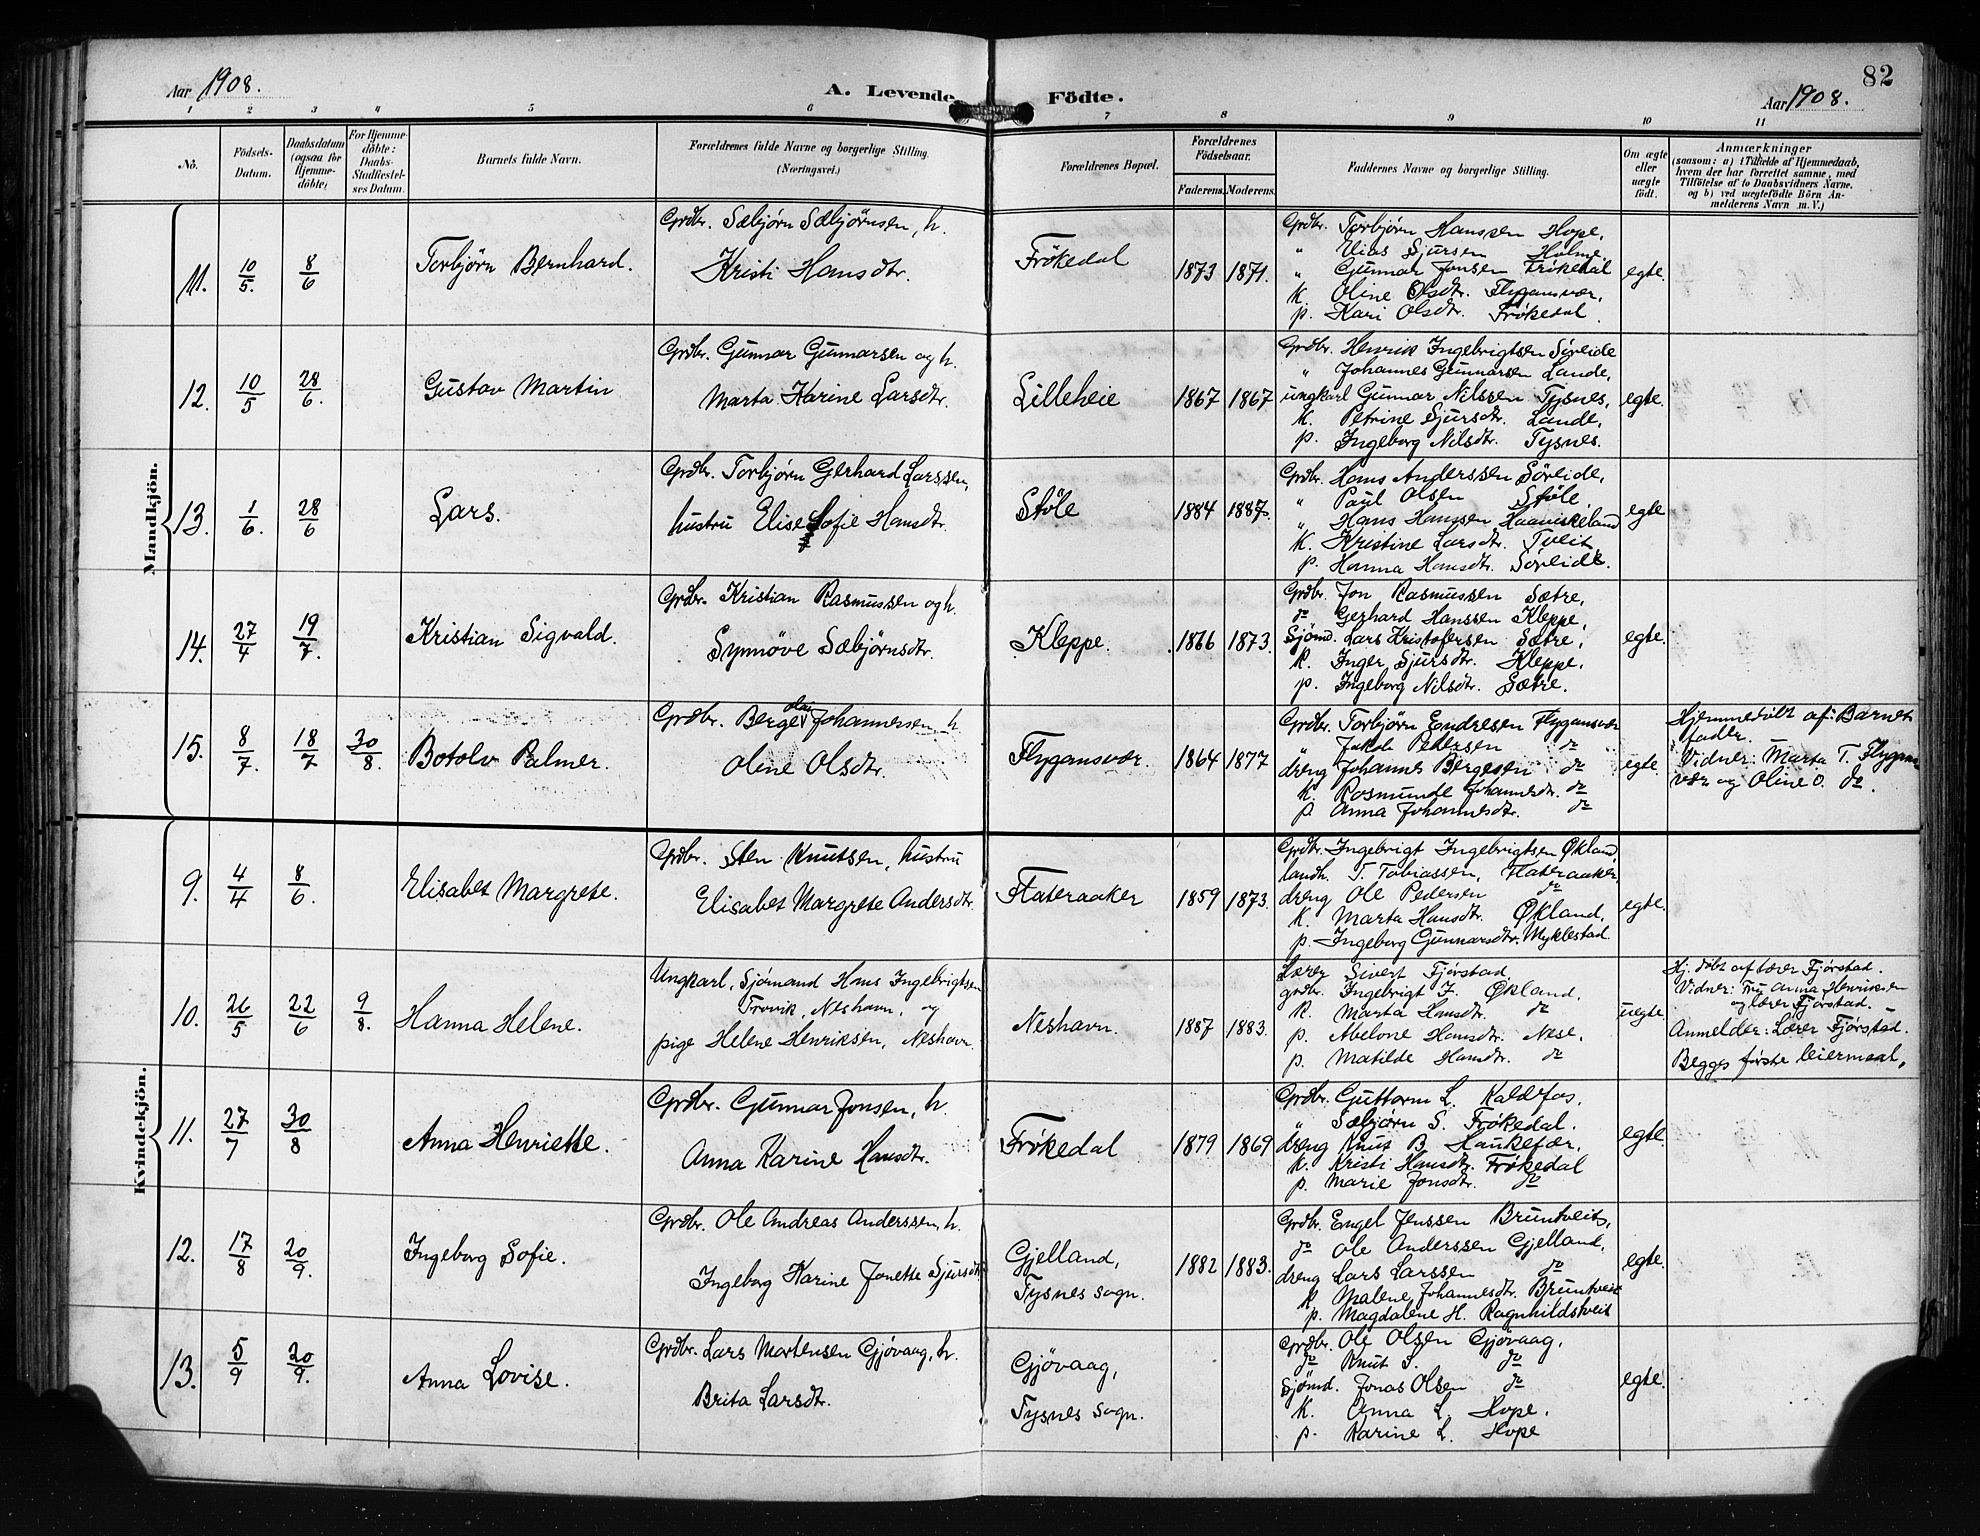 Aar 1908.
A. Levende Födte.
82
Aar 1908.
1 2 3 4 5 6 7 8 9 10 11
No.
Födsels-Datum.
Daabsdatum (ogsaa for Hjemme-döbte)
For Hjemme-döbte: Daabs-Stadfæstel-ses Datum.
Barnets fulde Navn.
Forældrenes fulde Navne og borgerlige Stilling. (Næringsvei.)
Forældrenes Bopæl.
Forældrenes Födselsaar.
Faderens. Moderens.
Faddernes Navne og borgerlige Stilling.
Om ægte eller uægte födt.
Anmærkninger
(saasom: a) i Tilfælde af Hjemmedaab,
hvem der har forrettet samme, med
Tilföielse af to Daabsvidners Navne,
og b) ved uægtefödte Börn An-
melderens Navn m. V.)
Mandkjön.
11. 10/5. 8/6 Torbjörn Bernhard.
Grdbr. Sæbjörn Sæbjörnsen, h.
Kristi Hansdtr.
Frökedal 1873 1871.
Grdbr. Torbjörn Hanssen Hope,
" Elias Sjursen Holme,
" Gunnar Jonsen Frökedal
K. Oline Olsdtr. Flygansvær,
p. Kari Olsdtr. Frökedal.
egte.
12. 10/5 28/6. Gustav Martin
Grdbr. Gunnar Gunnarsen og h.
Marta Karine Larsdtr.
Lilleheie 1867 1867
Grdbr. Henrik Ingebrigtsen Söreide
" Johannes Gunnarsen Lande,
ungkarl Gunnar Nilssen Tysnes,
K. Petrine Sjursdtr. Lande,
p. Ingeborg Nilsdtr. Tysnes.
egte.
13. 1/6. 28/6 Lars.
Grdbr. Torbjörn Gerhard Larssen,
hustru Elise Sofie Hansdtr.
Stöle 1884 1887.
Grdbr. Hans Anderssen Söreide,
" Paul Olsen Stöle,
" Hans Hanssen Haaviskeland
K. Kristine Larsdtr. Tveit
p. Hanna Hansdtr. Söreide.
egte
14. 27/4 19/7. Kristian Sigvald.
Grdbr. Kristian Rasmussen og h.
Synnöve Sæbjörnsdtr.
Kleppe. 1866 1873.
Grdbr. Jon Rasmussen Sætre,
do Gerhard Hanssen Kleppe,
Sjömd. Lars Kristofersen Sætre,
K. Inger Sjursdtr. Kleppe.
p. Ingeborg Nilsdtr. Sætre.
egte.
15. 8/7. 18/7 30/8. Botolv Palmer.
Grdbr. Berge Olai Johannessen h
Oline Olsdtr.
Flygansvær. 1864 1877
Grdbr. Torbjörn Endresen Flygansvær
" Jakob Pedersen do
dreng Johannes Bergesen do
K. Rosmunde Johannesdtr. do
p. Anna Johannesdtr. do
egte.
Hjemmedöbt af: Barnets
fader.
Vidner: Marta T. Flygans
vær og Oline O. do.
Kvindekjön.
9. 4/4 8/6. Elisabet Margrete.
Grdbr. Sten Knutsen, hustru
Elisabet Margrete Andersdtr.
Flateraaker 1859 1873.
Grdbr. Ingebrigt Ingebrigtsen Økland
landh. T. Tobiassen, Flateraaker,
dreng Ole Pedersen do
K. Marta Hansdtr. Økland,
p. Ingeborg Gunnarsdtr. Myklestad.
egte.
10. 26/5 22/6 9/8. Hanna Helene.
Ungkarl, Sjömand Hans Ingebrigtsen
Trovik, Neshavn, og
pige Helene Henriksen, Neshavn.
Neshavn. 1887 1883.
Lærer Sivert Fjörstad.
grdbr. Ingebrigt I. Økland.
K. Marta Hansdtr. do
p. Abelone Hansdtr. Nese.
p. Matilde Hansdtr. do
uegte.
Hj. döbt af lærer Fjörstad.
Vidner: Fru Anna Henriksen
og lærer Fjörstad.
Anmelder: Lærer Fjörstad.
Begges förste leiermaal.
11. 27/7 30/8 Anna Henriette.
Grdbr. Gunnar Jonsen, h.
Anna Karine Hansdtr.
Frökedal 1879 1869
Grdbr. Guttorm L. Kaldefos,
" Sæbjörn S. Frökedal.
dreng Knut B. Haukefær,
K. Kristi Hansdtr. Frökedal
p. Marie Jonsdtr. do
egte.
12. 17/8 20/9. Ingeborg Sofie.
Grdbr. Ole Andreas Anderssen, h.
Ingeborg Karine Jonette Sjursdtr
Gjelland,
Tysnes sogn.
1882 1883.
Grdbr. Engel Jenssen Bruntveit,
do Ole Anderssen Gjelland,
dreng Lars Larssen do
K. Malene Johannesdtr. Bruntveit
p. Magdalene H. Ragnhildstveit
egte.
13. 5/9 20/9. Anna Lovise.
Grdbr. Lars Mortensen Gjövaag, h.
Brita Larsdtr.
Gjövaag,
Tysnes sogn.
Grdbr. Ole Olsen Gjövaag,
do Knut S. do
Sjömd. Jonas Olsen do
K. Anna L. Hope.
p. Karine L. Hope
egte.